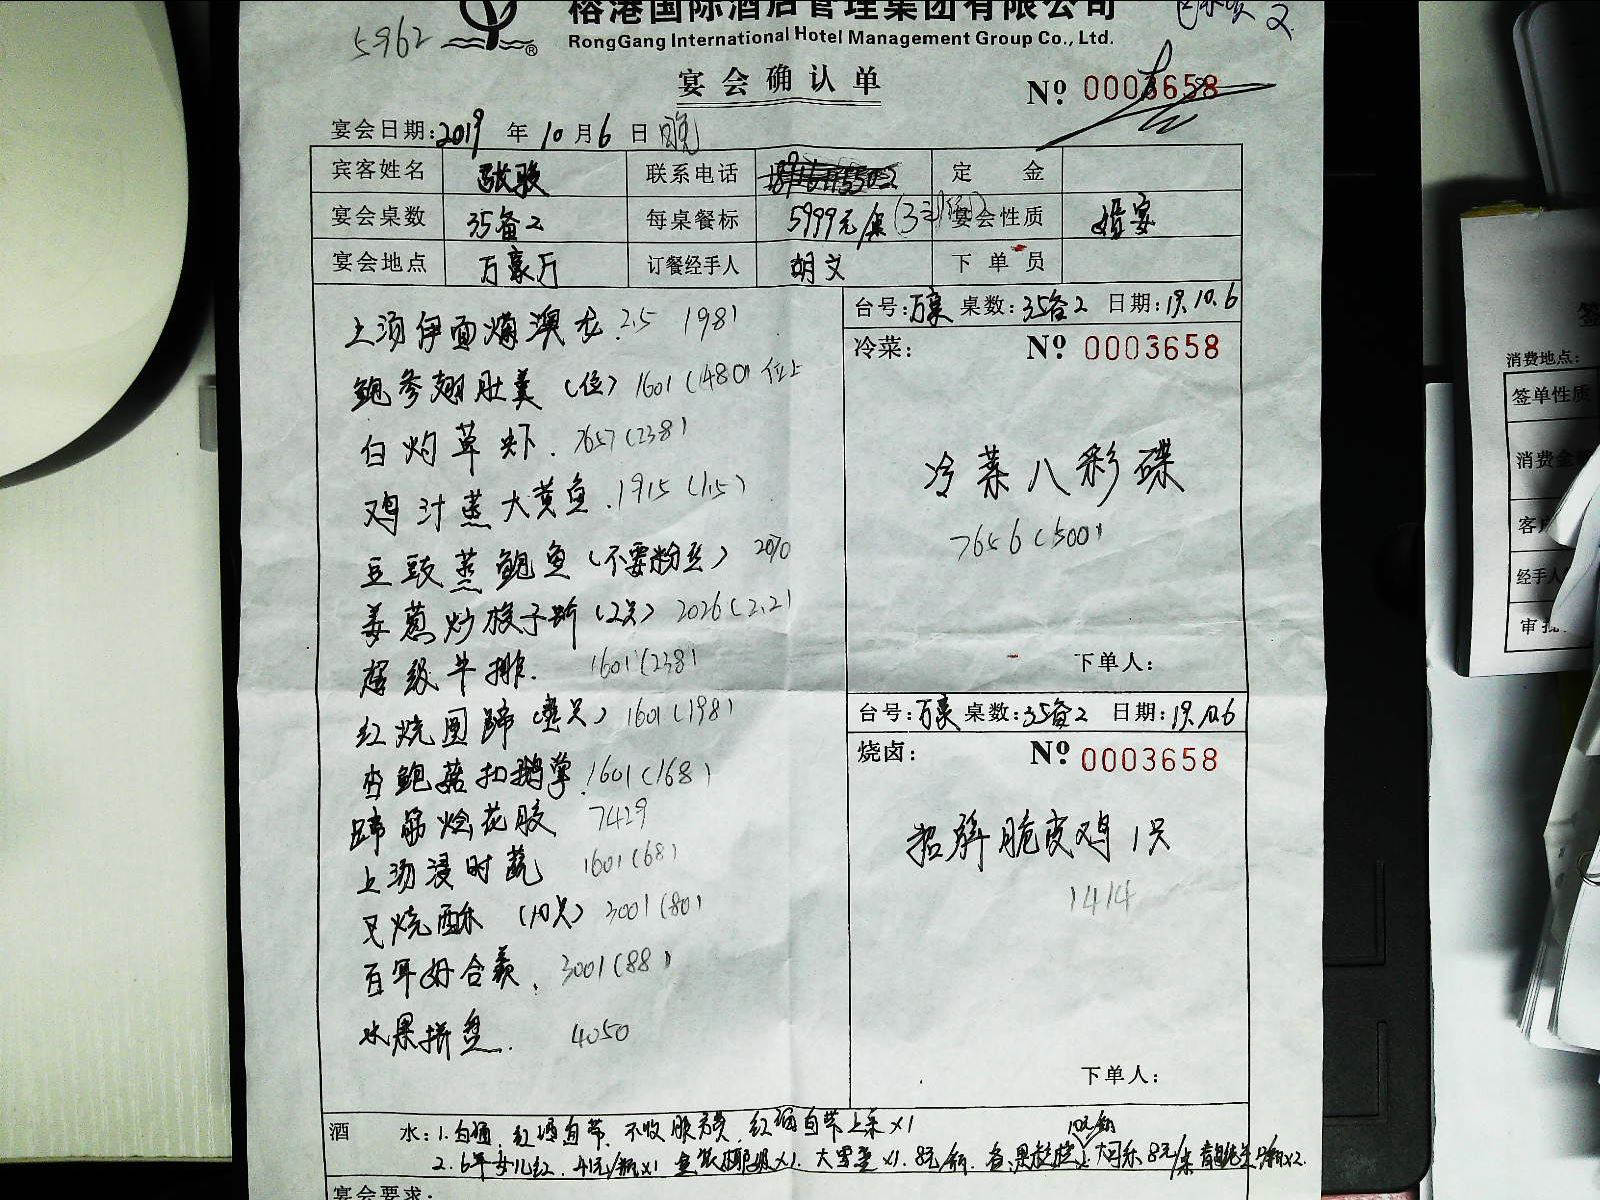 榕港国际酒店管理集团有限公司
5962
RongGang International Hotel Management Group Co., Ltd.
宴会确认单
Nº 0003658
宴会日期:2019年10月6日晚
宾客姓名 张骏 联系电话 定金
宴会桌数 35备2 每桌餐标 5999元/桌 宴会性质 婚宴
宴会地点 万豪厅 订餐经手人 胡文 下单员
台号:万豪 桌数:35备2 日期:19.10.6
冷菜: Nº 0003658
上汤伊面焗澳龙 2.5 1981
鲍参翅肚羹(位) 1601(1480) 位上
白灼草虾 7657(238)
鸡汁蒸大黄鱼 1915(1.5)
豆豉蒸鲍鱼(不要粉丝) 2070
姜葱炒梭子蟹(2只) 2026(2.2)
1601(238)
红烧圆蹄 1601(198)
杏鲍菇扣鹅掌 1601(168)
蹄筋烩花胶 7429
上汤浸时蔬 1601(68)
叉烧酥(10只) 3001(80)
百年好合羹 3001(88)
水果拼盘 4050
冷菜八彩碟
7656(500)
下单人:
台号:万豪 桌数:35备2 日期:19.10.6
烧卤: Nº 0003658
招牌脆皮鸡1只
1414
下单人:
酒水:1.白酒、红酒自带、不收服务费、红酒自带上桌×1
10元/瓶
2.6年女儿红 41元/瓶×1 ×1 大雪碧×1 8元/瓶 大可乐8元/
宴会要求:
签
消费地点:
签单性质
消费金
客户
经手人
审批